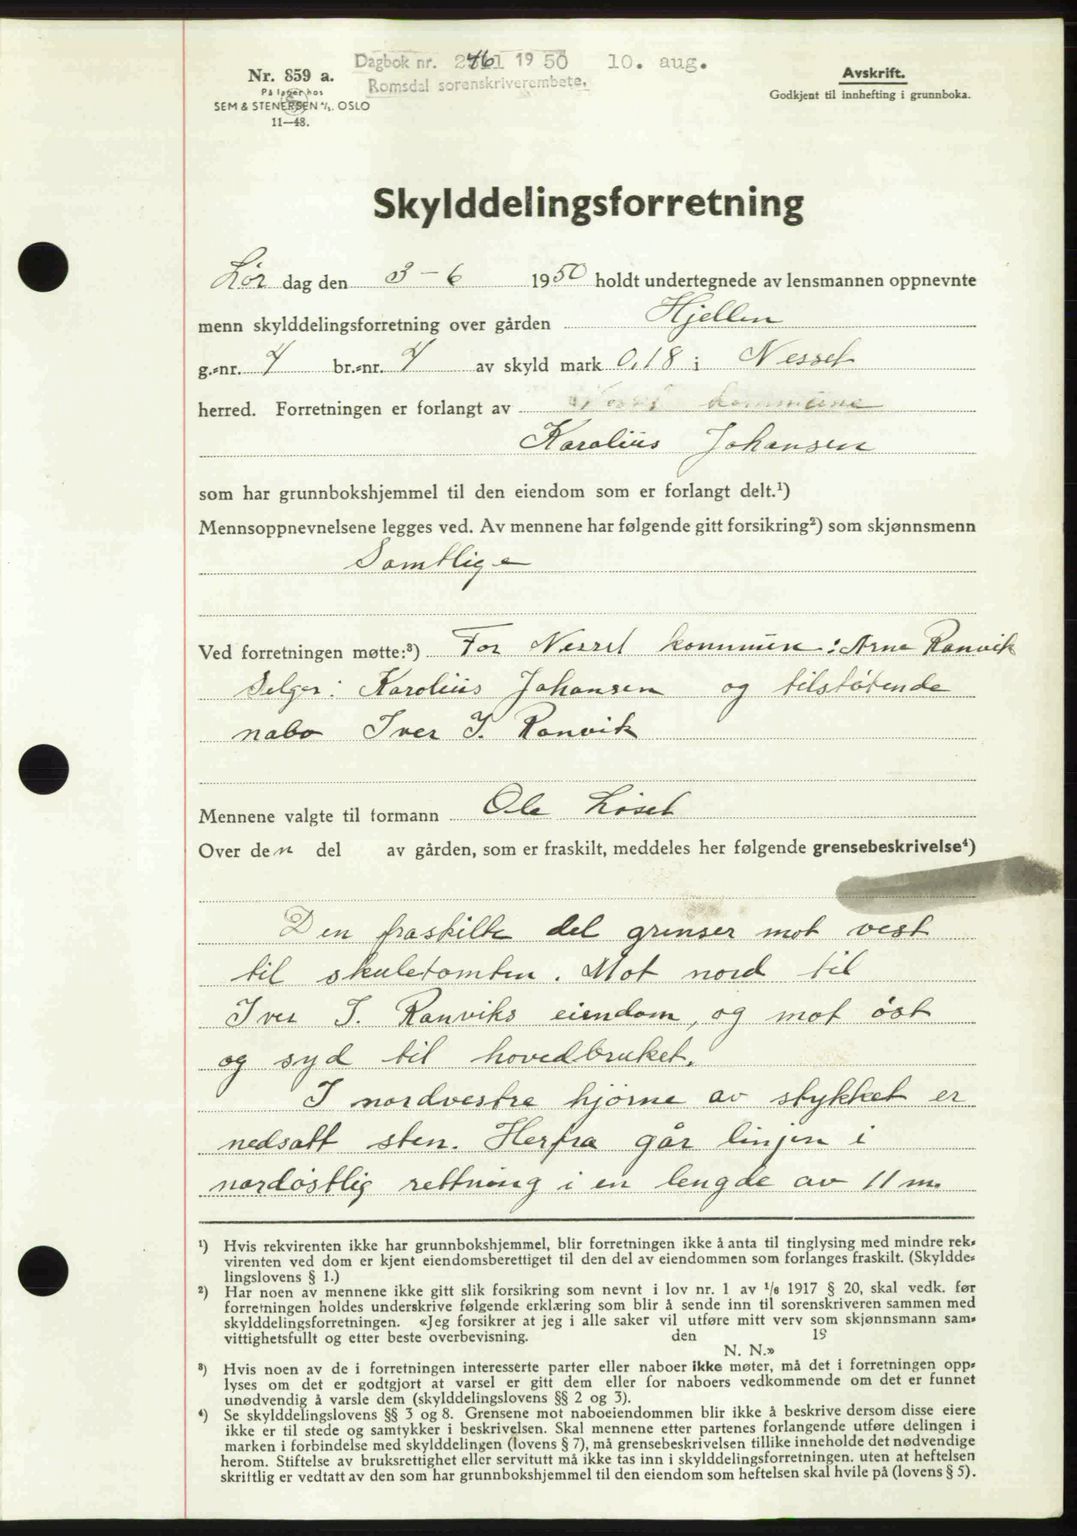 Dagbok nr. 2461 1950 10. aug.
Romsdal sorenskriverembete.
Nr. 859 a.
På lager hos
SEM & STENERSEN A/S. OSLO
11—48.
Avskrift.
Godkjent til innhefting i grunnboka.
Skylddelingsforretning
Lør dag den 3-6 1950 holdt undertegnede av lensmannen oppnevnte
menn skylddelingsforretning over gården Hjellen
g.-nr. 4 br.-nr. 4 av skyld mark 0,18 i Nesset
herred. Forretningen er forlangt av kommune
Karolius Johansen
som har grunnbokshjemmel til den eiendom som er forlangt delt.¹)
Mennsoppnevnelsene legges ved. Av mennene har følgende gitt forsikring²) som skjønnsmenn
Samtlige
Ved forretningen møtte:³) For Nesset kommune: Arne Ranvik
Selger: Karolius Johansen og tilstøtende
nabo Iver I. Ranvik
Mennene valgte til formann Ole Løset
Over den del av gården, som er fraskilt, meddeles her følgende grensebeskrivelse⁴)
Den fraskilte del grenser mot vest
til skuletomten. Mot nord til
Iver I. Ranviks eiendom, og mot øst
og syd til hovedbruket.
I nordvestre hjørne av stykket er
nedsatt sten. Herfra går linjen i
nordøstlig rettning i en lengde av 11 m.
¹) Hvis rekvirenten ikke har grunnbokshjemmel, blir forretningen ikke å anta til tinglysing med mindre rek-
virenten ved dom er kjent eiendomsberettiget til den del av eiendommen som forlanges fraskilt. (Skyldde-
lingslovens § 1.)
²) Har noen av mennene ikke gitt slik forsikring som nevnt i lov nr. 1 av 1/6 1917 § 20, skal vedk. før
forretningen holdes underskrive følgende erklæring som blir å sende inn til sorenskriveren sammen med
skylddelingsforretningen. «Jeg forsikrer at jeg i alle saker vil utføre mitt verv som skjønnsmann sam-
vittighetsfullt og etter beste overbevisning. den 19
N. N.»
³) Hvis noen av de i forretningen interesserte parter eller naboer ikke møter, må det i forretningen opp-
lyses om det er godtgjort at varsel er gitt dem eller for naboers vedkommende om det er funnet
unødvendig å varsle dem (skylddelingslovens §§ 2 og 3).
⁴) Se skylddelingslovens §§ 3 og 8. Grensene mot naboeiendommen blir ikke å beskrive dersom disse eiere
ikke er til stede og samtykker i beskrivelsen. Skal mennene etter partenes forlangende utføre delingen i
marken i forbindelse med skylddelingen (lovens § 7), må grensebeskrivelsen tillike inneholde det nødvendige
herom. Stiftelse av bruksrettighet eller servitutt må ikke tas inn i skylddelingsforretningen. uten at heftelsen
skriftlig er vedtatt av den som har grunnbokshjemmel til den eiendom som heftelsen skal hvile på (lovens § 5).